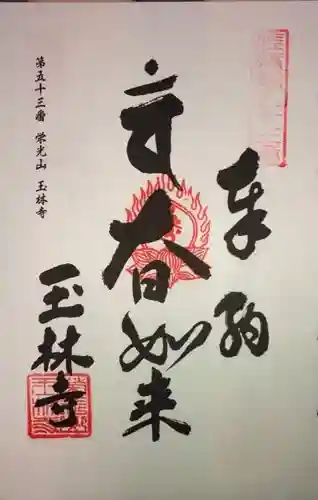 奉納
大日如来
玉林寺
第五十三番 栄光山 玉林寺